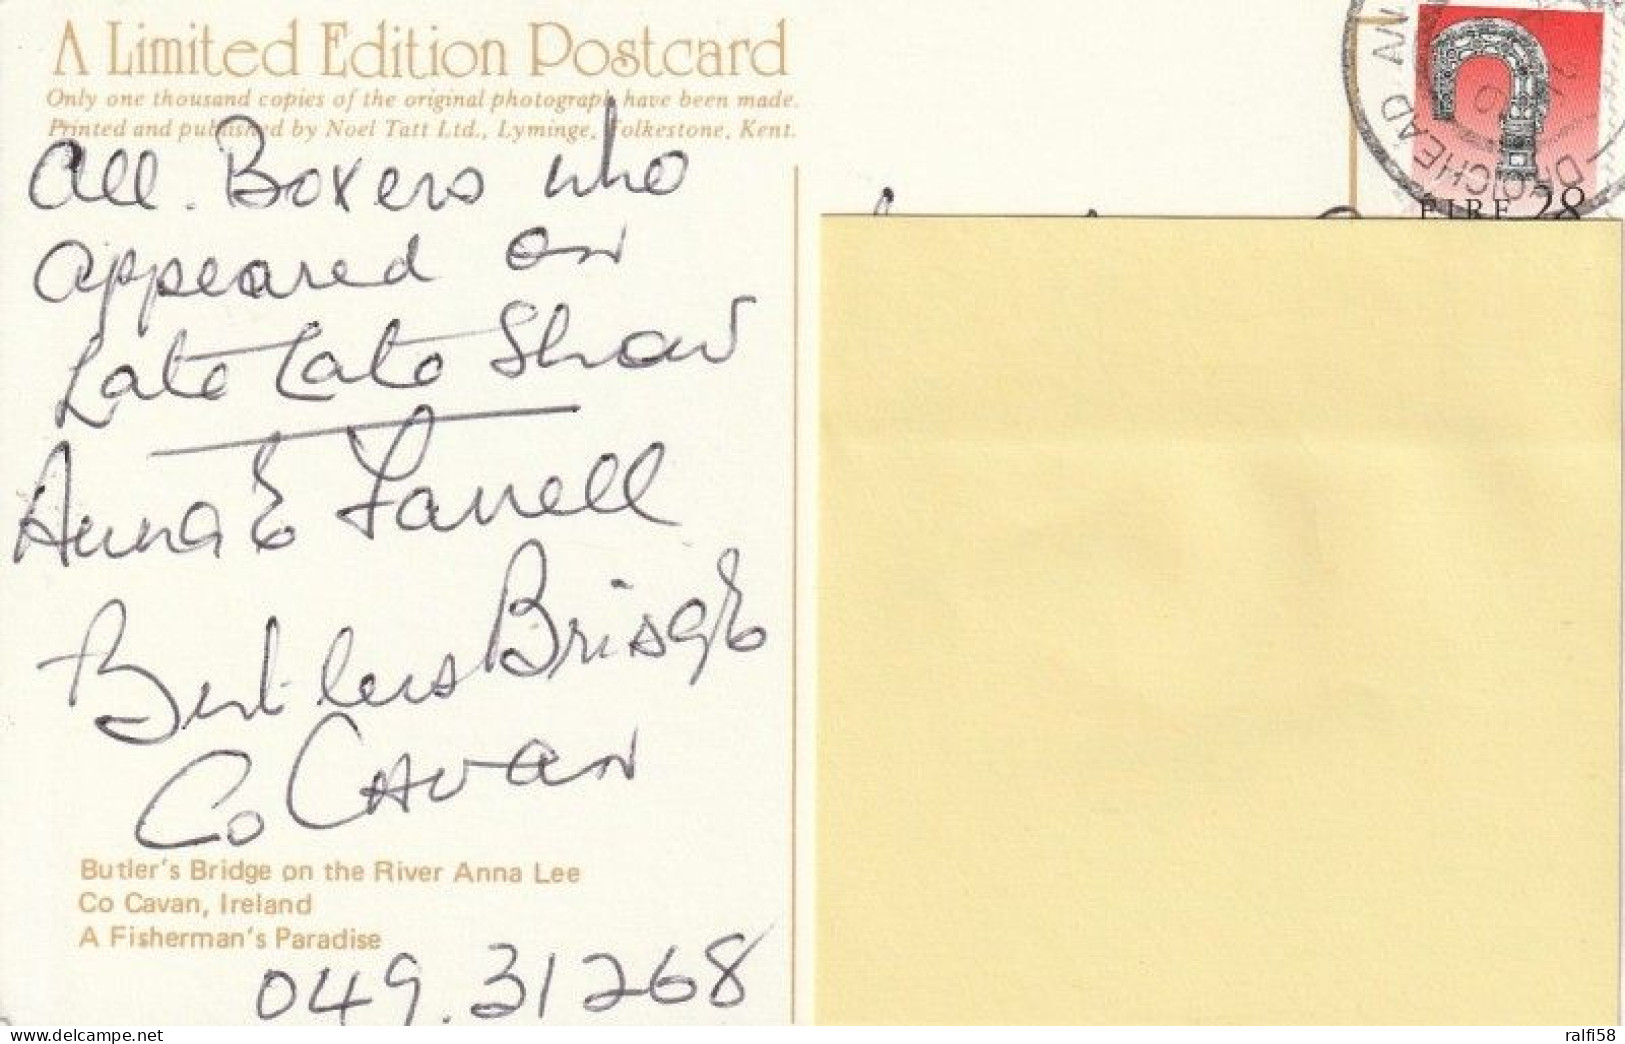 A Limited Edition Postcard
Only one thousand copies of the original photograph have been made.
Printed and published by Noel Tatt Ltd., Lyminge, Folkestone, Kent.
All. Boxers who
appeared on
Late Late Show
Anna E Farrell
Butlers Bridge
Co Cavan
Butler's Bridge on the River Anna Lee
Co Cavan, Ireland
A Fisherman's Paradise
049.31268
DROICHEAD
ÉIRE 28
ralfi58